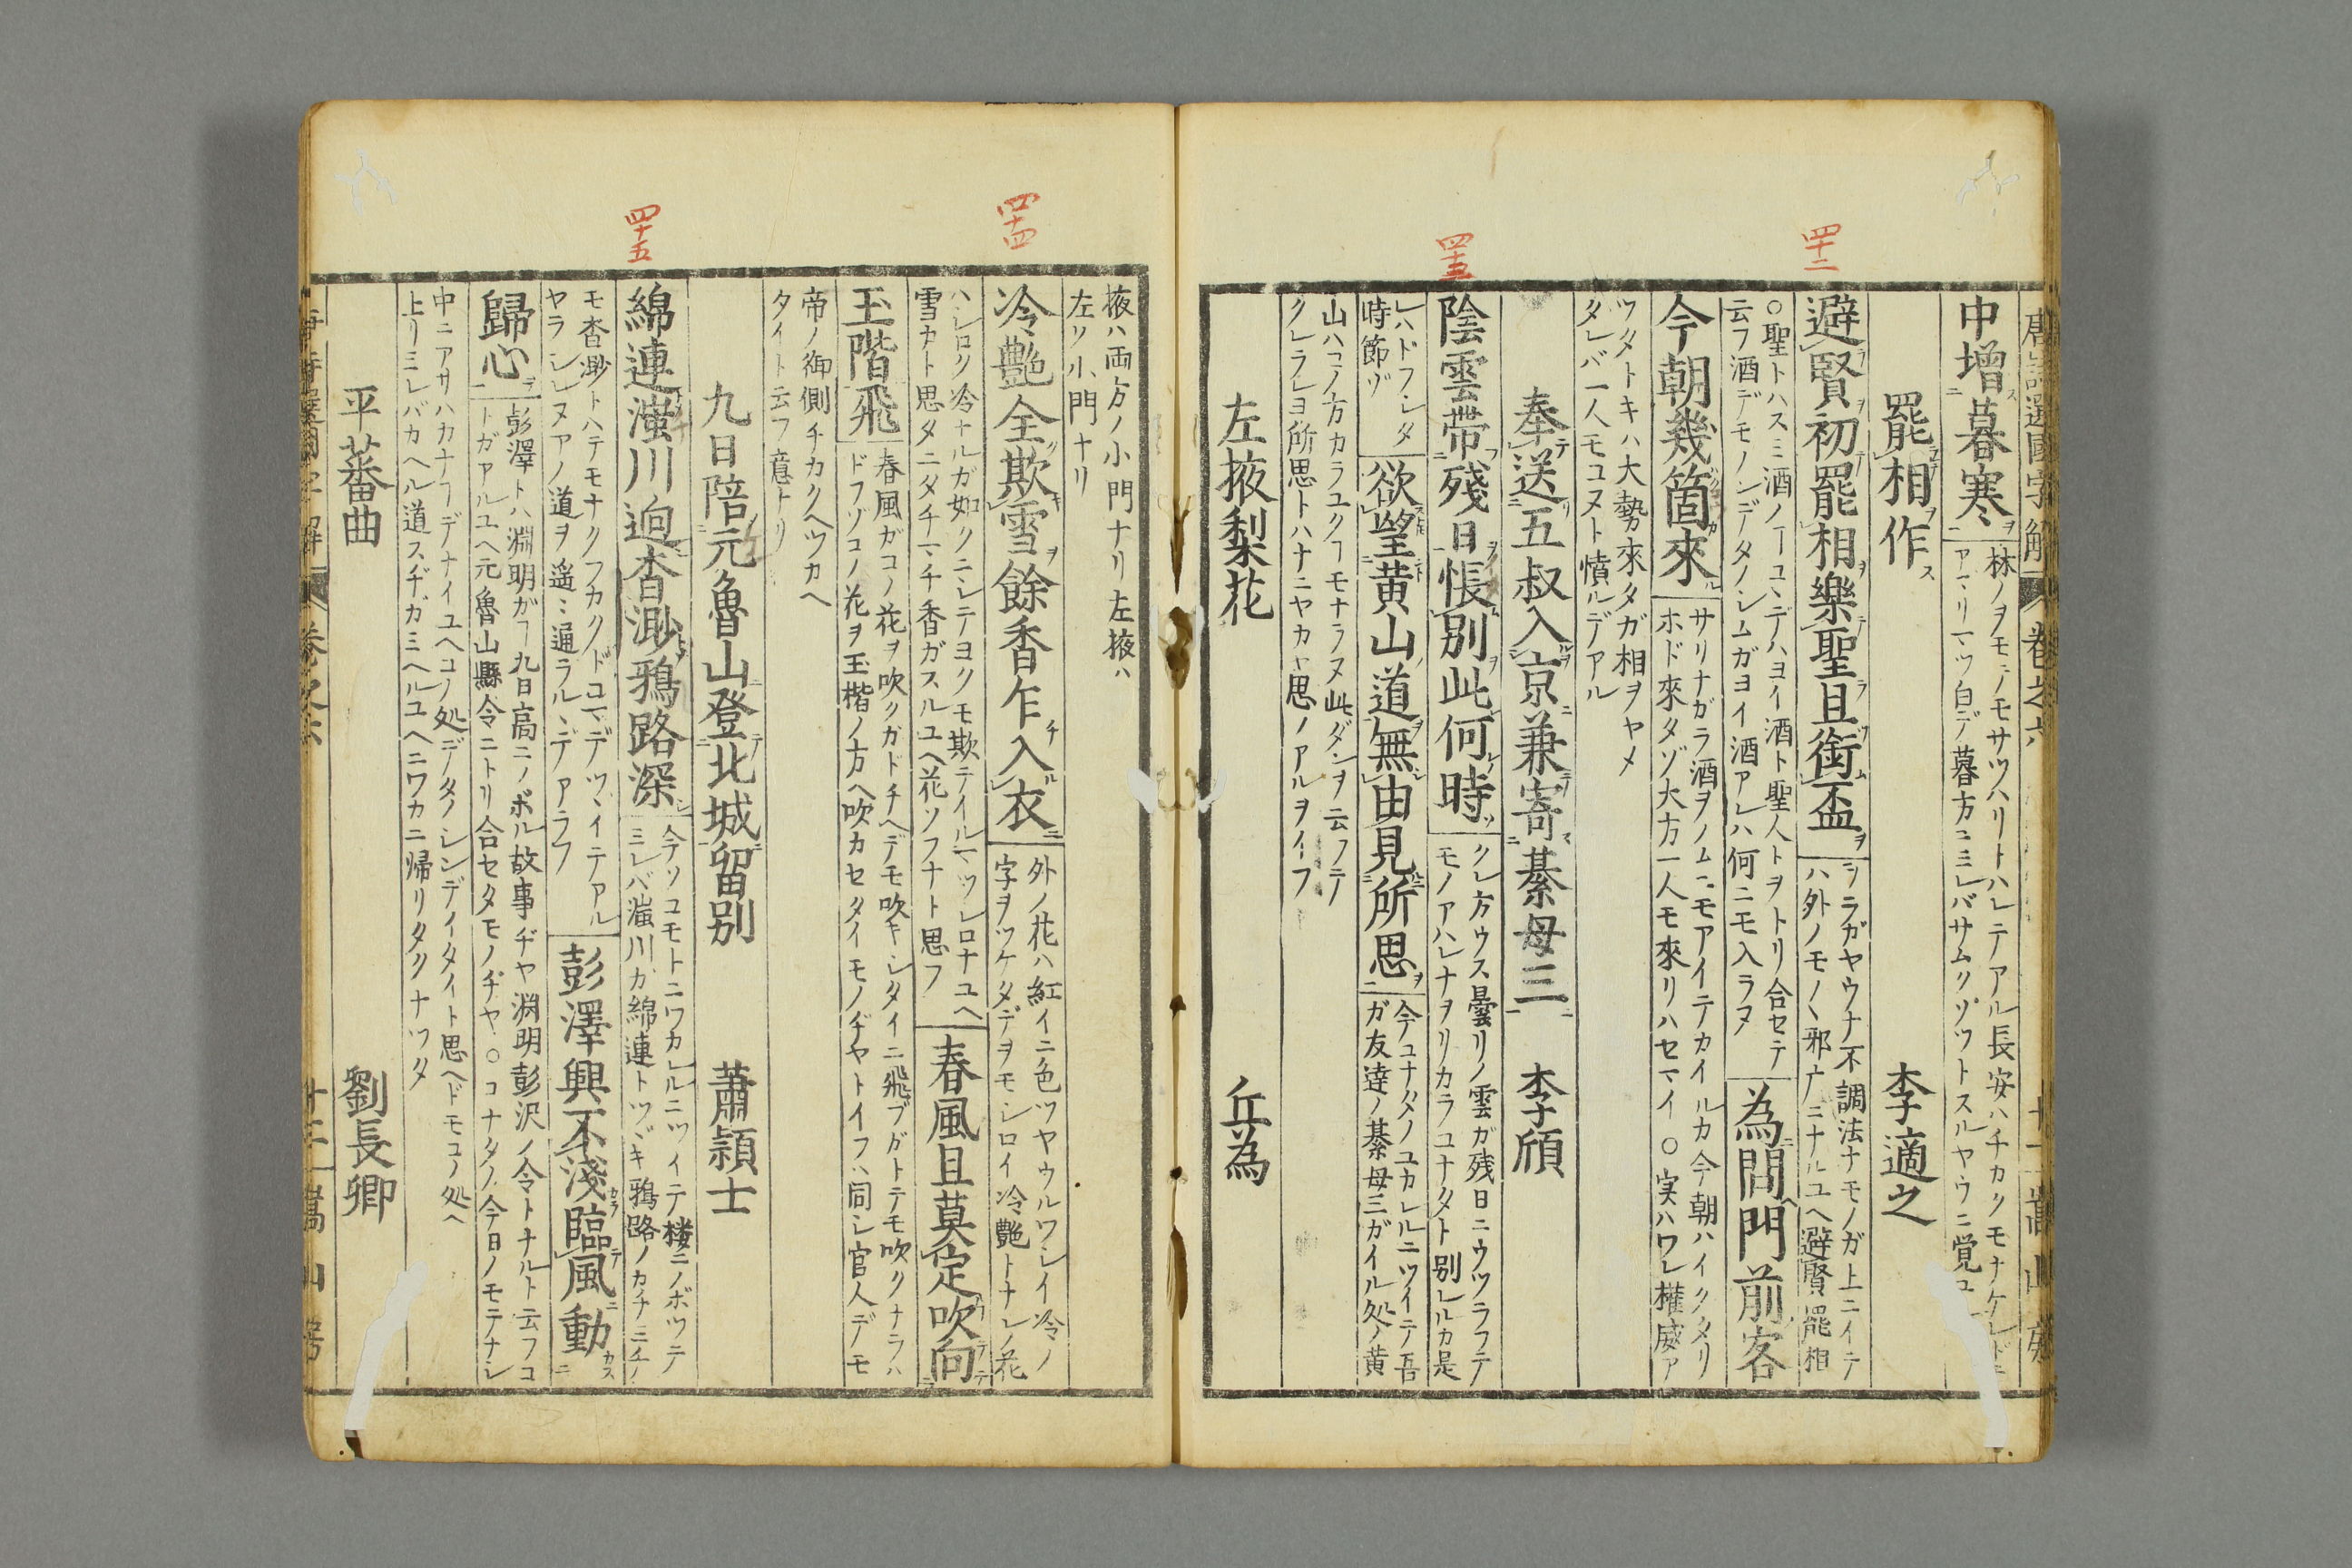 四十二
四十三
唐詩選國字解
卷之六
中增暮寒
林ノヲモテノモサツハリトハレテアル長安ハチカクモナケレドニ
アマリマツ白デ暮方ニミレバサムクゾツトスルヤウニ覚ユ
罷相作 李適之
避賢初罷相樂聖且銜盃
ヲラガヤウナ不調法ナモノガ上ニイテ
ハ外ノモノヽ邪广ニナルユヘ避賢罷相
○聖トハスミ酒ノ
ヿユヽデハヨイ酒ト聖人トヲトリ合セテ
云フ酒デモノンデタノシムガヨイ酒アレハ何ニモ入ラヌ
為問門前客
今朝幾箇來
サリナガラ酒ヲノムニモアイテカイルカ今朝ハイクタリ
ホド來タゾ大方一人モ來リハセマイ○実ハワレ權威ア
ツタトキハ大勢來タガ相ヲヤメ
タレバ一人モコヌト憤ルデアル
奉送五叔入京兼寄綦母三 李頎
陰雲帶殘日悵別此何時
クレ方ウス曇リノ雲ガ残日ニウツラフテ
モノアハレナヲリカラコナタト別レルカ是
レハトフシタ
時節ゾ
欲望黄山道無由見所思
今コナタノユカレルニツイテ吾
ガ友達ノ綦母三ガイル処ノ黄
山ハコノ方カラユクヿモナラヌ此ダンヲ云フテ
クレラレヨ所思トハナニヤカヤ思ノアルヲイフ
左掖梨花 丘為
四十四
四十五
掖ハ両方ノ小門ナリ左掖ハ
左リ小門ナリ
冷艷全欺雪餘香乍入衣
外ノ花ハ紅イニ色ツヤウルワレイ冷ノ
字ヲツケタデヲモシロイ冷艷トナレノ花
ハシロク冷ナルガ如クニシテヨクモ欺テイルマツシロナユヘ
雪カト思タニタチマチ香ガスルユヘ花ソフナト思フ
春風且莫定吹向
玉階飛
春風ガコノ花ヲ吹クガドチヘデモ吹キシタイニ飛ブガトテモ吹クナラハ
ドフゾコノ花ヲ玉楷ノ方ヘ吹カセタイモノヂヤトイフハ同シ官人デモ
帝ノ御側チカクヘツカヘ
タイト云フ意ナリ
九日陪元魯山登北城留別 蕭頴士
綿連滍川迥杳渺鴉路深
今ソコモトニワカレルニツイテ楼ニノボツテ
ミレバ滍川カ綿連トツヾキ鴉路ノカチミチノ
モ杳渺トハテモナクフカクドコマデツヽイテアル
ヤラシレヌアノ道ヲ遥ニ通ラルヽデアラフ
彭澤興不淺臨風動
歸心
彭澤トハ淵明がヿ九日高ニノボル故事ヂヤ淵明彭沢ノ令トナルト云フコ
トガアルユヘ元魯山縣令ニトリ合セタモノヂヤ○コナタノ今日ノモテナシ
中ニアサハカナヿデナイユヘコノ処デタノシンデイタイト思ヘドモコノ処ヘ
上リミレバカヘル道スヂガミヘルユヘニワカニ帰リタクナツタ
平蕃曲 劉長卿